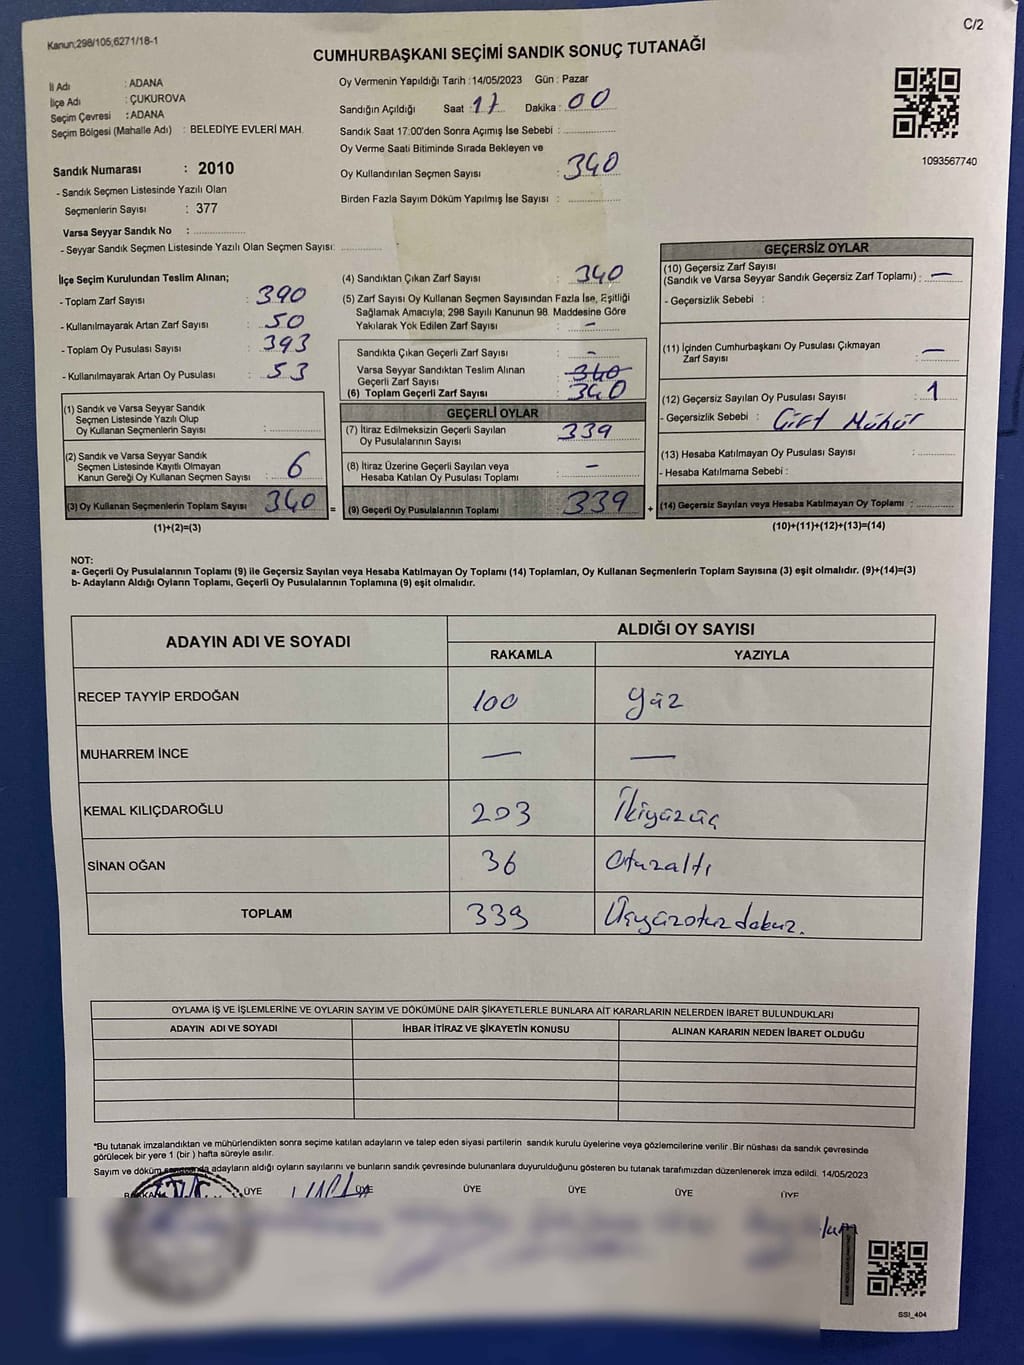 Kanun;298/105;6271/18-1
C/2
CUMHURBAŞKANI SEÇİMİ SANDIK SONUÇ TUTANAĞI
İl Adı : ADANA
İlçe Adı : ÇUKUROVA
Seçim Çevresi : ADANA
Seçim Bölgesi (Mahalle Adı) : BELEDİYE EVLERİ MAH.
Oy Vermenin Yapıldığı Tarih : 14/05/2023 Gün : Pazar
Sandığın Açıldığı Saat : 17 Dakika : 00
Sandık Saat 17:00'den Sonra Açımış İse Sebebi :
Oy Verme Saati Bitiminde Sırada Bekleyen ve
Oy Kullandırılan Seçmen Sayısı : 340
Birden Fazla Sayım Döküm Yapılmış İse Sayısı :
1093567740
Sandık Numarası : 2010
- Sandık Seçmen Listesinde Yazılı Olan
Seçmenlerin Sayısı : 377
Varsa Seyyar Sandık No :
- Seyyar Sandık Seçmen Listesinde Yazılı Olan Seçmen Sayısı:
İlçe Seçim Kurulundan Teslim Alınan;
- Toplam Zarf Sayısı : 390
- Kullanılmayarak Artan Zarf Sayısı : 50
- Toplam Oy Pusulası Sayısı : 393
- Kullanılmayarak Artan Oy Pusulası : 53
(1) Sandık ve Varsa Seyyar Sandık
Seçmen Listesinde Yazılı Olup
Oy Kullanan Seçmenlerin Sayısı :
(2) Sandık ve Varsa Seyyar Sandık
Seçmen Listesinde Kayıtlı Olmayan
Kanun Gereği Oy Kullanan Seçmen Sayısı : 6
(3) Oy Kullanan Seçmenlerin Toplam Sayısı : 340
(1)+(2)=(3)
=
(4) Sandıktan Çıkan Zarf Sayısı : 340
(5) Zarf Sayısı Oy Kullanan Seçmen Sayısından Fazla İse, Eşitliği
Sağlamak Amacıyla; 298 Sayılı Kanunun 98. Maddesine Göre
Yakılarak Yok Edilen Zarf Sayısı : -
Sandıkta Çıkan Geçerli Zarf Sayısı : -
Varsa Seyyar Sandıktan Teslim Alınan
Geçerli Zarf Sayısı : 340
(6) Toplam Geçerli Zarf Sayısı : 340
GEÇERLİ OYLAR
(7) İtiraz Edilmeksizin Geçerli Sayılan
Oy Pusulalarının Sayısı : 339
(8) İtiraz Üzerine Geçerli Sayılan veya
Hesaba Katılan Oy Pusulası Toplamı : -
(9) Geçerli Oy Pusulalarının Toplamı : 339
+
GEÇERSİZ OYLAR
(10) Geçersiz Zarf Sayısı
(Sandık ve Varsa Seyyar Sandık Geçersiz Zarf Toplamı) : -
- Geçersizlik Sebebi :
(11) İçinden Cumhurbaşkanı Oy Pusulası Çıkmayan
Zarf Sayısı : -
(12) Geçersiz Sayılan Oy Pusulası Sayısı : 1
- Geçersizlik Sebebi : Çift Mühür
(13) Hesaba Katılmayan Oy Pusulası Sayısı :
- Hesaba Katılmama Sebebi :
(14) Geçersiz Sayılan veya Hesaba Katılmayan Oy Toplamı :
(10)+(11)+(12)+(13)=(14)
NOT:
a- Geçerli Oy Pusulalarının Toplamı (9) ile Geçersiz Sayılan veya Hesaba Katılmayan Oy Toplamı (14) Toplamları, Oy Kullanan Seçmenlerin Toplam Sayısına (3) eşit olmalıdır. (9)+(14)=(3)
b- Adayların Aldığı Oyların Toplamı, Geçerli Oy Pusulalarının Toplamına (9) eşit olmalıdır.
ADAYIN ADI VE SOYADI
ALDIĞI OY SAYISI
RAKAMLA YAZIYLA
RECEP TAYYİP ERDOĞAN 100 yüz
MUHARREM İNCE — —
KEMAL KILIÇDAROĞLU 203 İkiyüzüç
SİNAN OĞAN 36 Otuzaltı
TOPLAM 339 Üçyüzotuzdokuz.
OYLAMA İŞ VE İŞLEMLERİNE VE OYLARIN SAYIM VE DÖKÜMÜNE DAİR ŞİKAYETLERLE BUNLARA AİT KARARLARIN NELERDEN İBARET BULUNDUKLARI
ADAYIN ADI VE SOYADI İHBAR İTİRAZ VE ŞİKAYETİN KONUSU ALINAN KARARIN NEDEN İBARET OLDUĞU
*Bu tutanak imzalandıktan ve mühürlendikten sonra seçime katılan adayların ve talep eden siyasi partilerin sandık kurulu üyelerine veya gözlemcilerine verilir .Bir nüshası da sandık çevresinde
görülecek bir yere 1 (bir ) hafta süreyle asılır.
Sayım ve döküm sonucunda adayların aldığı oyların sayılarını ve bunların sandık çevresinde bulunanlara duyurulduğunu gösteren bu tutanak tarafımızdan düzenlenerek imza edildi. 14/05/2023
BAŞKAN ÜYE ÜYE ÜYE ÜYE ÜYE ÜYE
SSI_404